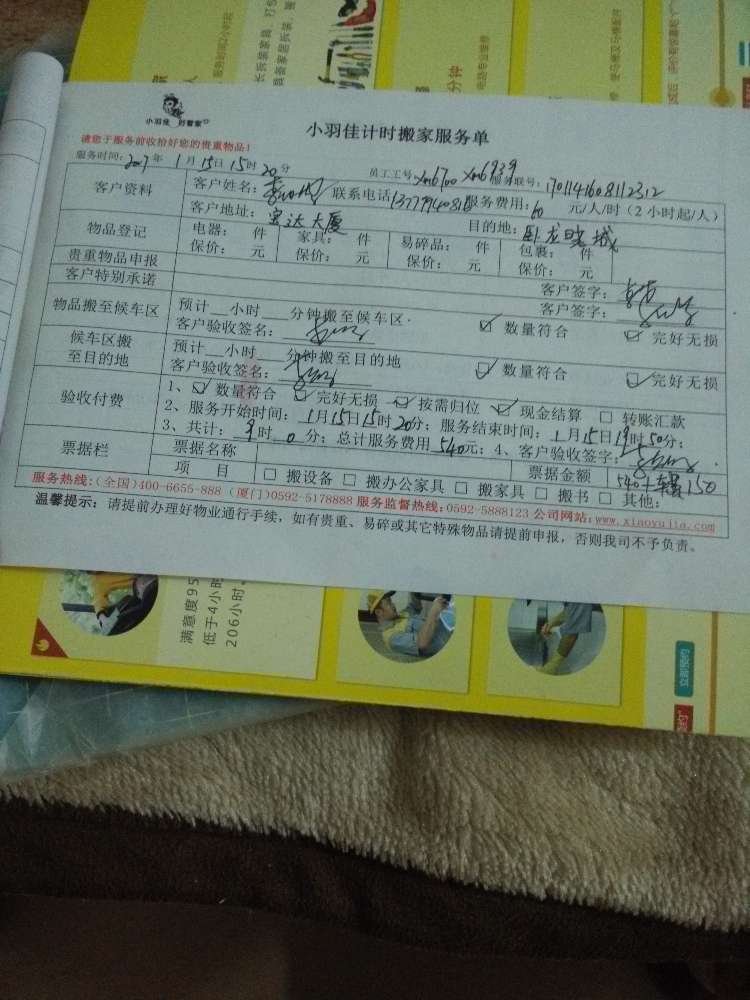 小羽佳 好管家
小羽佳计时搬家服务单
请您于服务前收拾好您的贵重物品!
服务时间: 2017年 1月15日15时20分 员工工号 xm6700 xm6939 服务联号: 1701141608112312
客户资料 客户姓名: 联系电话 服务费用: 60 元/人/时(2小时起/人)
客户地址: 宏达大厦 目的地: 卧龙晓城
物品登记 电器: 件 家具: 件 易碎品: 件 包裹: 件
保价: 元 保价: 元 保价: 元 保价: 元
贵重物品申报 客户签字:
客户特别承诺 客户签字:
物品搬至候车区 预计__小时___分钟搬至候车区. ☑ 数量符合 ☑ 完好无损
客户验收签名:
候车区搬至目的地 预计__小时___分钟搬至目的地 ☑ 数量符合 ☑ 完好无损
客户验收签名:
验收付费 1、☑ 数量符合 ☑ 完好无损 ☑ 按需归位 ☑ 现金结算 □ 转账汇款
2、服务开始时间: 1月15日15时20分; 服务结束时间: 1月15日19时50分;
3、共计: 时 0 分; 总计服务费用 540元; 4、客户验收签字:
票据栏 票据名称 票据金额 540+车费150
项 目 □ 搬设备 □ 搬办公家具 □ 搬家具 □ 搬书 □ 其他:
服务热线:(全国)400-6655-888 (厦门)0592-5178888 服务监督热线:0592-5888123 公司网站:www.xiaoyujia.com
温馨提示: 请提前办理好物业通行手续,如有贵重、易碎或其它特殊物品请提前申报,否则我司不予负责。
满意度95
低于4小时
206小时。
立即预约